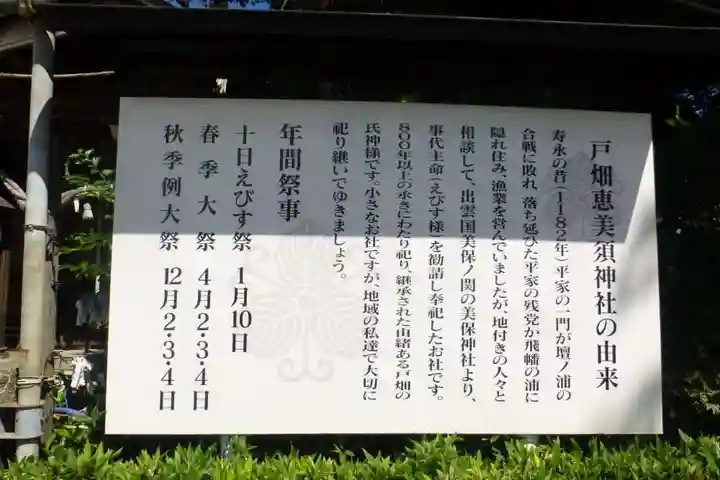 戸畑恵美須神社の由来
寿永の昔(1182年)平家の一門が壇ノ浦の
合戦に敗れ、落ち延びた平家の残党が飛幡の浦に
隠れ住み、漁業を営んでいましたが、地付きの人々と
相談して、出雲国美保ノ関の美保神社より、
事代主命(えびす様)を勧請し奉祀したお社です。
800年以上の永きにわたり祀り、継承された由緒ある戸畑の
氏神様です。小さなお社ですが、地域の私達で大切に
祀り継いでゆきましょう。
年間祭事
十日えびす祭 1月10日
春季大祭 4月2・3・4日
秋季例大祭 12月2・3・4日